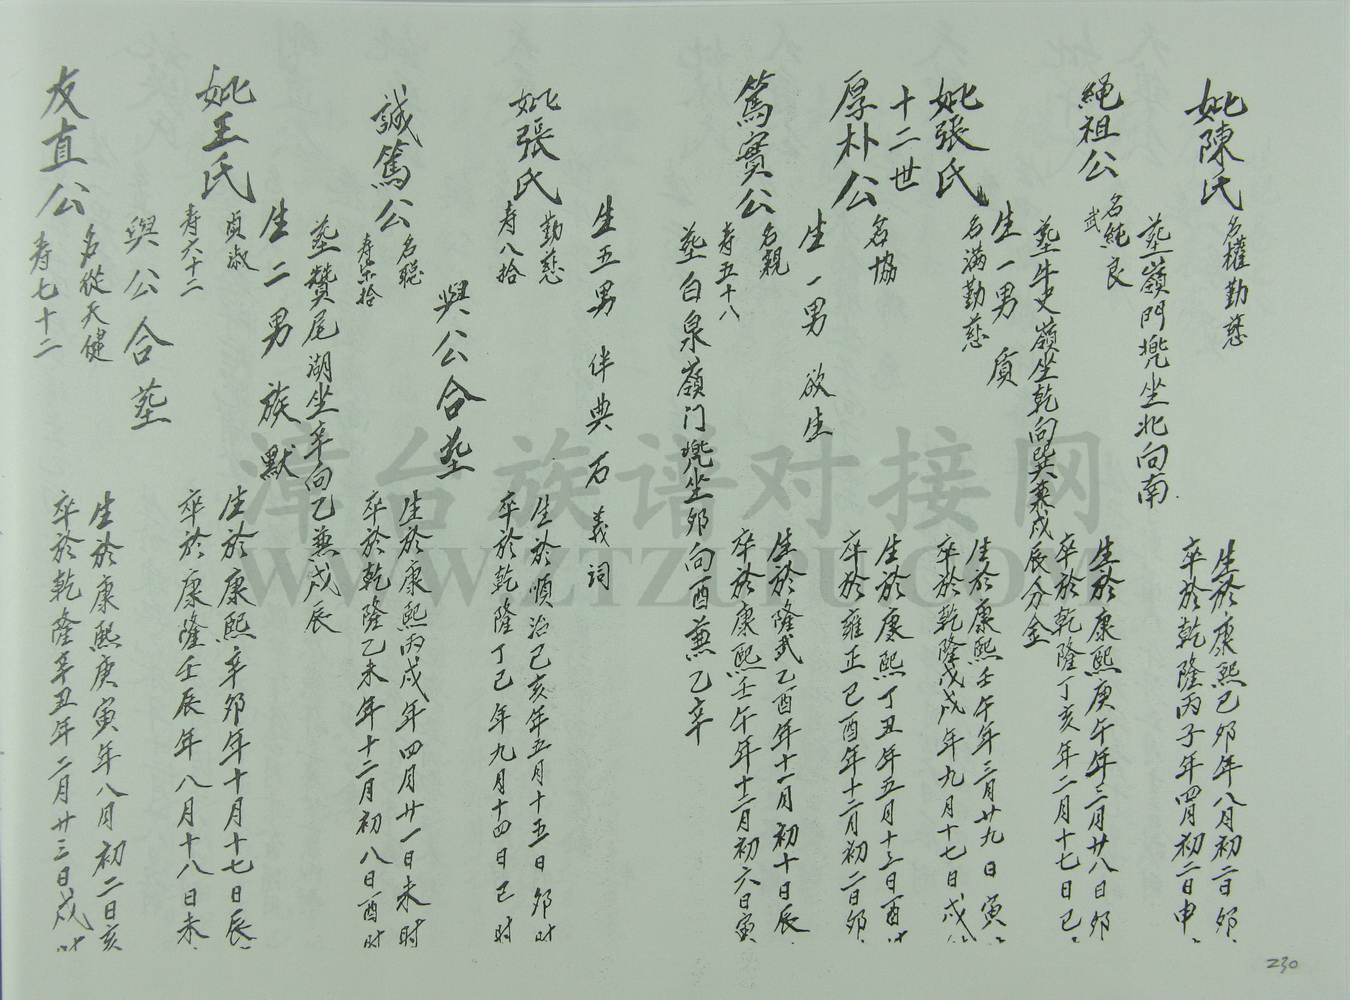 妣陳氏
名權勤慈
生於康熙己卯年八月初二日卯
卒於乾隆丙子年四月初二日申
葬嶺門兜坐北向南
繩祖公
名純良
武
生於康熙庚午年三月廿八日卯
卒於乾隆丁亥年二月十七日巳
葬牛史嶺坐乾向巽兼戌辰分金
生一男 質
妣張氏
名滿勤慈
生於康熙壬午年三月廿九日寅
卒於乾隆戊戌年九月十七日戌
十二世
厚朴公
名協
生於康熙丁丑年五月十三日酉
卒於雍正己酉年十二月初二日卯
生一男 欲生
篤實公
名親
寿五十八
生於隆武乙酉年十一月初十日辰
卒於康熙壬午年十二月初六日寅
葬白泉嶺门兜坐卯向酉兼乙辛
生五男 伴典石義詞
妣張氏
勤慈
寿八拾
生於順治己亥年五月十五日卯时
卒於乾隆丁巳年九月十四日巳时
與公合葬
誠篤公
名聪
寿柒拾
生於康熙丙戌年四月廿一日未时
卒於乾隆乙未年十二月初八日酉时
葬贊尾湖坐辛向乙兼戌辰
生二男 族默
妣王氏
貞淑
寿六十二
生於康熙辛卯年十月十七日辰
卒於康隆壬辰年八月十八日未
與公合葬
友直公
名從天健
寿七十二
生於康熙庚寅年八月初二日亥
卒於乾隆辛丑年二月廿三日戌时
230
漳台族谱对接网
WWW.ZTZUPU.COM